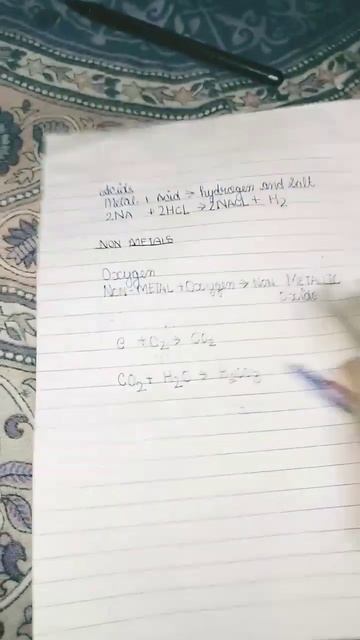 acids
Metal + Acid → hydrogen and salt
2NA + 2HCL → 2NACL + H2
NON METALS
Oxygen
NON-METAL + Oxygen → NON METALIC
Oxide
C + O2 → CO2
CO2 + H2O → H2CO3